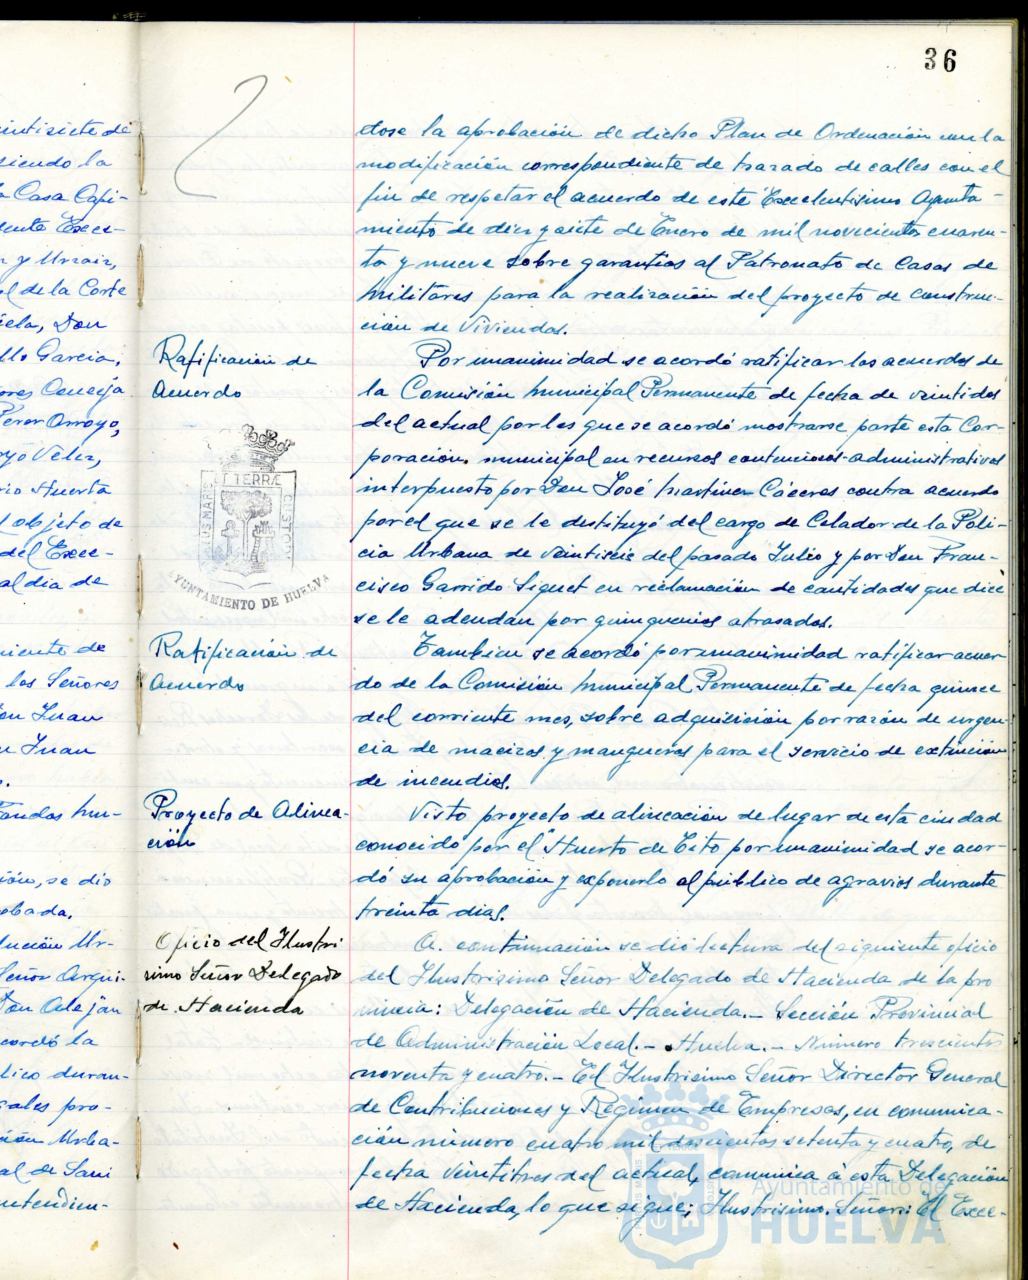 36
intisiete de
siendo la
Casa Capi-
ente Exce-
r y Urzaiz,
l de la Corte
iela, Don
llo Garcia,
ores Conceja
Perez Arroyo,
yo Velez,
rio Huerta
objeto de
del Exce-
al dia de
iente de
los Señores
on Juan
n Juan
andas mu-
ión, se dio
obada.
lución Ur-
Señor Arqui-
Don Alejan
cordó la
lico duran-
gales pro-
ión Urba-
al de Sani
ntendien-
dose la aprobación de dicho Plan de Ordenación con la
modificación correspondiente de trazado de calles con el
fin de respetar el acuerdo de este Excelentisimo Ayunta-
miento de diez y siete de Enero de mil novecientos cuaren-
ta y nueve sobre garantias al Patronato de Casas de
Militares para la realización del proyecto de construc-
ción de Viviendas.
Ratificación de
Acuerdo
Por unanimidad se acordó ratificar los acuerdos de
la Comisión Municipal Permanente de fecha de veintidos
del actual por los que se acordó mostrarse parte esta Cor-
poración municipal en recursos contenciosos-administrativos
interpuesto por Don José Martinez Cáceres contra acuerdo
por el que se le destituyó del cargo de Celador de la Poli-
cia Urbana de veintiseis del pasado Julio y por Don Fran-
cisco Garrido Siguet en reclamación de cantidades que dice
se le adeudan por quinquenios atrasados.
TERRÆ
CUSTODIA
AYUNTAMIENTO DE HUELVA
Ratificación de
Acuerdo
Tambien se acordó por unanimidad ratificar acuer-
do de la Comisión Municipal Permanente de fecha quince
del corriente mes, sobre adquisición por razón de urgen-
cia de macizos y mangueras para el servicio de extinción
de incendios.
Proyecto de Alinea-
ción
Visto proyecto de alineación de lugar de esta ciudad
conocido por el "Huerto de Tito por unanimidad se acor-
dó su aprobación y exponerlo al público de agravios durante
treinta dias.
Oficio del Ilustri
simo Señor Delegado
de Hacienda
A. continuación se dió lectura del siguiente oficio
del Ilustrisimo Señor Delegado de Hacienda de la pro
vincia: Delegación de Hacienda.- Sección Provincial
de Administración Local.- Huelva.- Número trescientos
noventa y cuatro.- El Ilustrisimo Señor Director General
de Contribuciones y Régimen de Empresas, en comunica-
ción número cuatro mil doscientos setenta y cuatro, de
fecha veintitres del actual, comunica á esta Delegación
de Hacienda, lo que sigue; Ilustrisimo. Señor: El Exce-
Ayuntamiento de
HUELVA